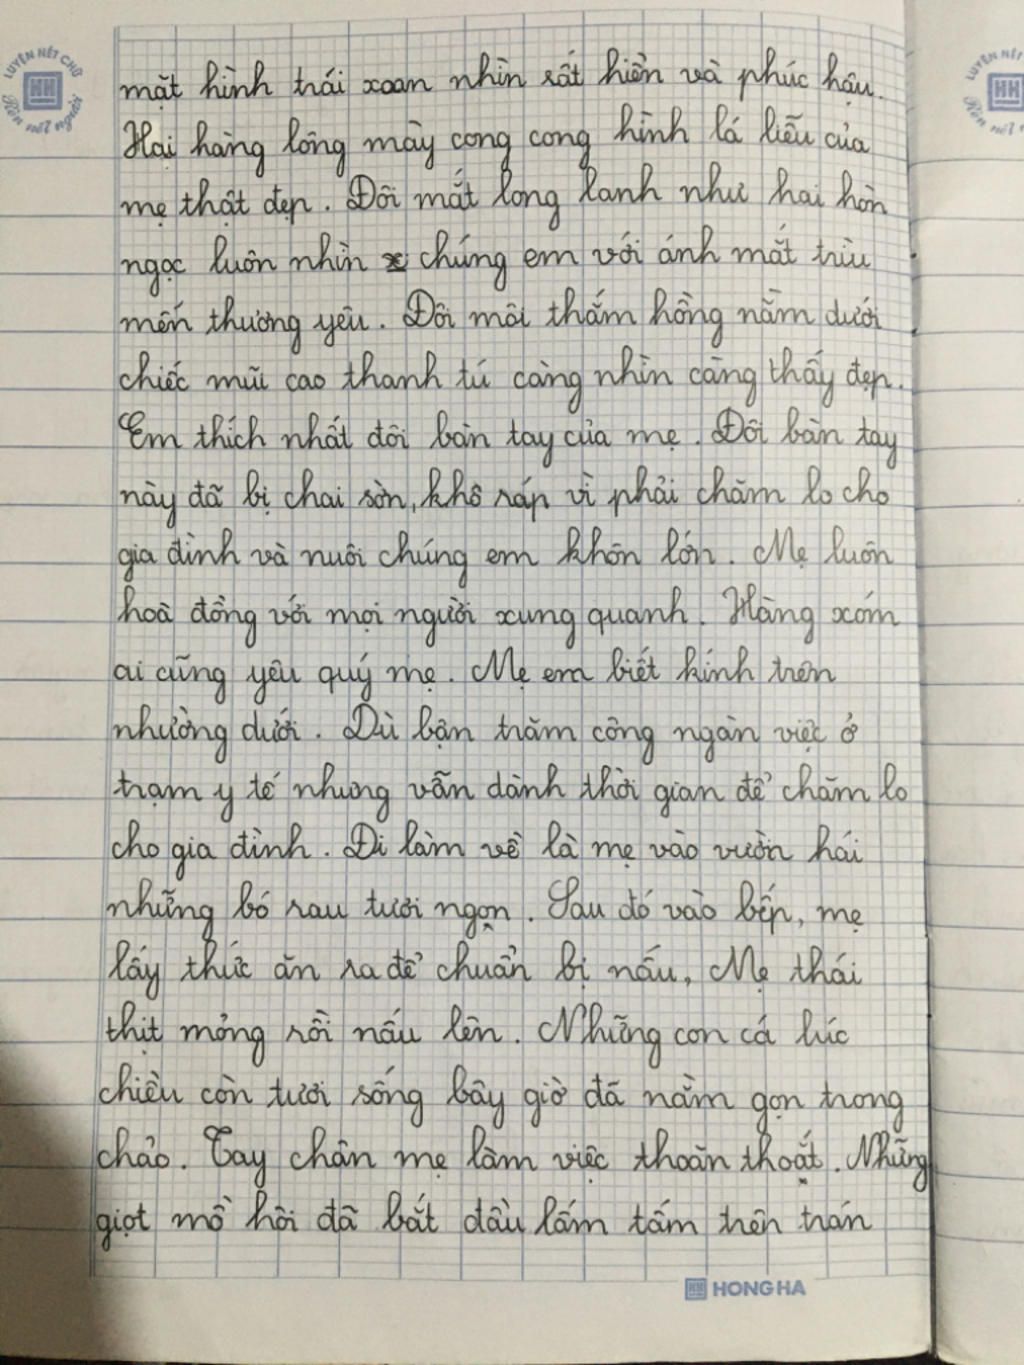 LUYỆN NÉT CHỮ
Rèn nết người
mặt hình trái xoan nhìn rất hiền và phúc hậu.
Hai hàng lông mày cong cong hình lá liễu của
mẹ thật đẹp. Đôi mắt long lanh như hai hòn
ngọc luôn nhìn chúng em với ánh mắt trìu
mến thương yêu. Đôi môi thắm hồng nằm dưới
chiếc mũi cao thanh tú càng nhìn càng thấy đẹp.
Em thích nhất đôi bàn tay của mẹ. Đôi bàn tay
này đã bị chai sờn, khô ráp vì phải chăm lo cho
gia đình và nuôi chúng em khôn lớn. Mẹ luôn
hoà đồng với mọi người xung quanh. Hàng xóm
ai cũng yêu quý mẹ. Mẹ em biết kính trên
nhường dưới. Dù bận trăm công ngàn việc ở
trạm y tế nhưng vẫn dành thời gian để chăm lo
cho gia đình. Đi làm về là mẹ vào vườn hái
những bó rau tươi ngọn. Sau đó vào bếp, mẹ
lấy thức ăn ra để chuẩn bị nấu, Mẹ thái
thịt mỏng rồi nấu lên. Những con cá lúc
chiều còn tươi sống bây giờ đã nằm gọn trong
chảo. Tay chân mẹ làm việc thoăn thoắt. Những
giọt mồ hôi đã bắt đầu lấm tấm trên trán
HH HONG HA